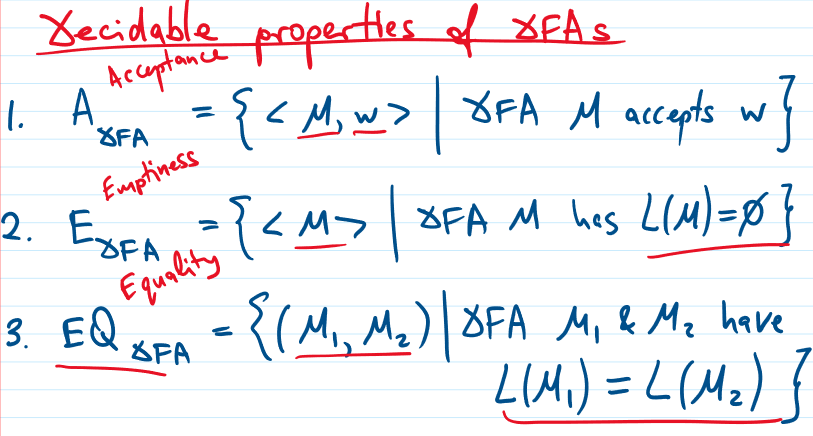 Decidable properties of DFAs
Acceptance
1. A_DFA = { < M, w > | DFA M accepts w }
Emptiness
2. E_DFA = { < M > | DFA M has L(M) = ∅ }
Equality
3. EQ_DFA = { (M₁, M₂) | DFA M₁ & M₂ have
L(M₁) = L(M₂) }